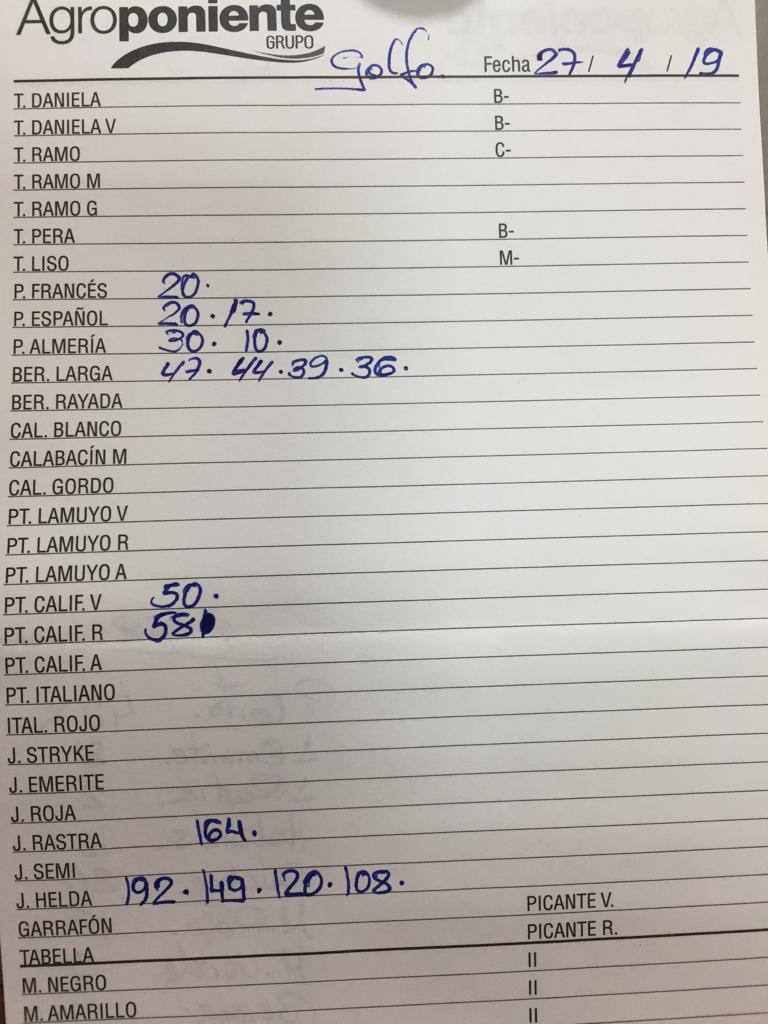 Agroponiente
GRUPO
Golfo. Fecha 27 / 4 / 19
T. DANIELA B-
T. DANIELA V B-
T. RAMO C-
T. RAMO M
T. RAMO G
T. PERA B-
T. LISO M-
P. FRANCÉS 20.
P. ESPAÑOL 20 . 17 .
P. ALMERÍA 30 . 10 .
BER. LARGA 47 . 44 . 39 . 36 .
BER. RAYADA
CAL. BLANCO
CALABACÍN M
CAL. GORDO
PT. LAMUYO V
PT. LAMUYO R
PT. LAMUYO A
PT. CALIF. V 50 .
PT. CALIF. R 58
PT. CALIF. A
PT. ITALIANO
ITAL. ROJO
J. STRYKE
J. EMERITE
J. ROJA
J. RASTRA 164 .
J. SEMI
J. HELDA 192 . 149 . 120 . 108 .
GARRAFÓN PICANTE V.
TABELLA PICANTE R.
M. NEGRO II
M. AMARILLO II
II